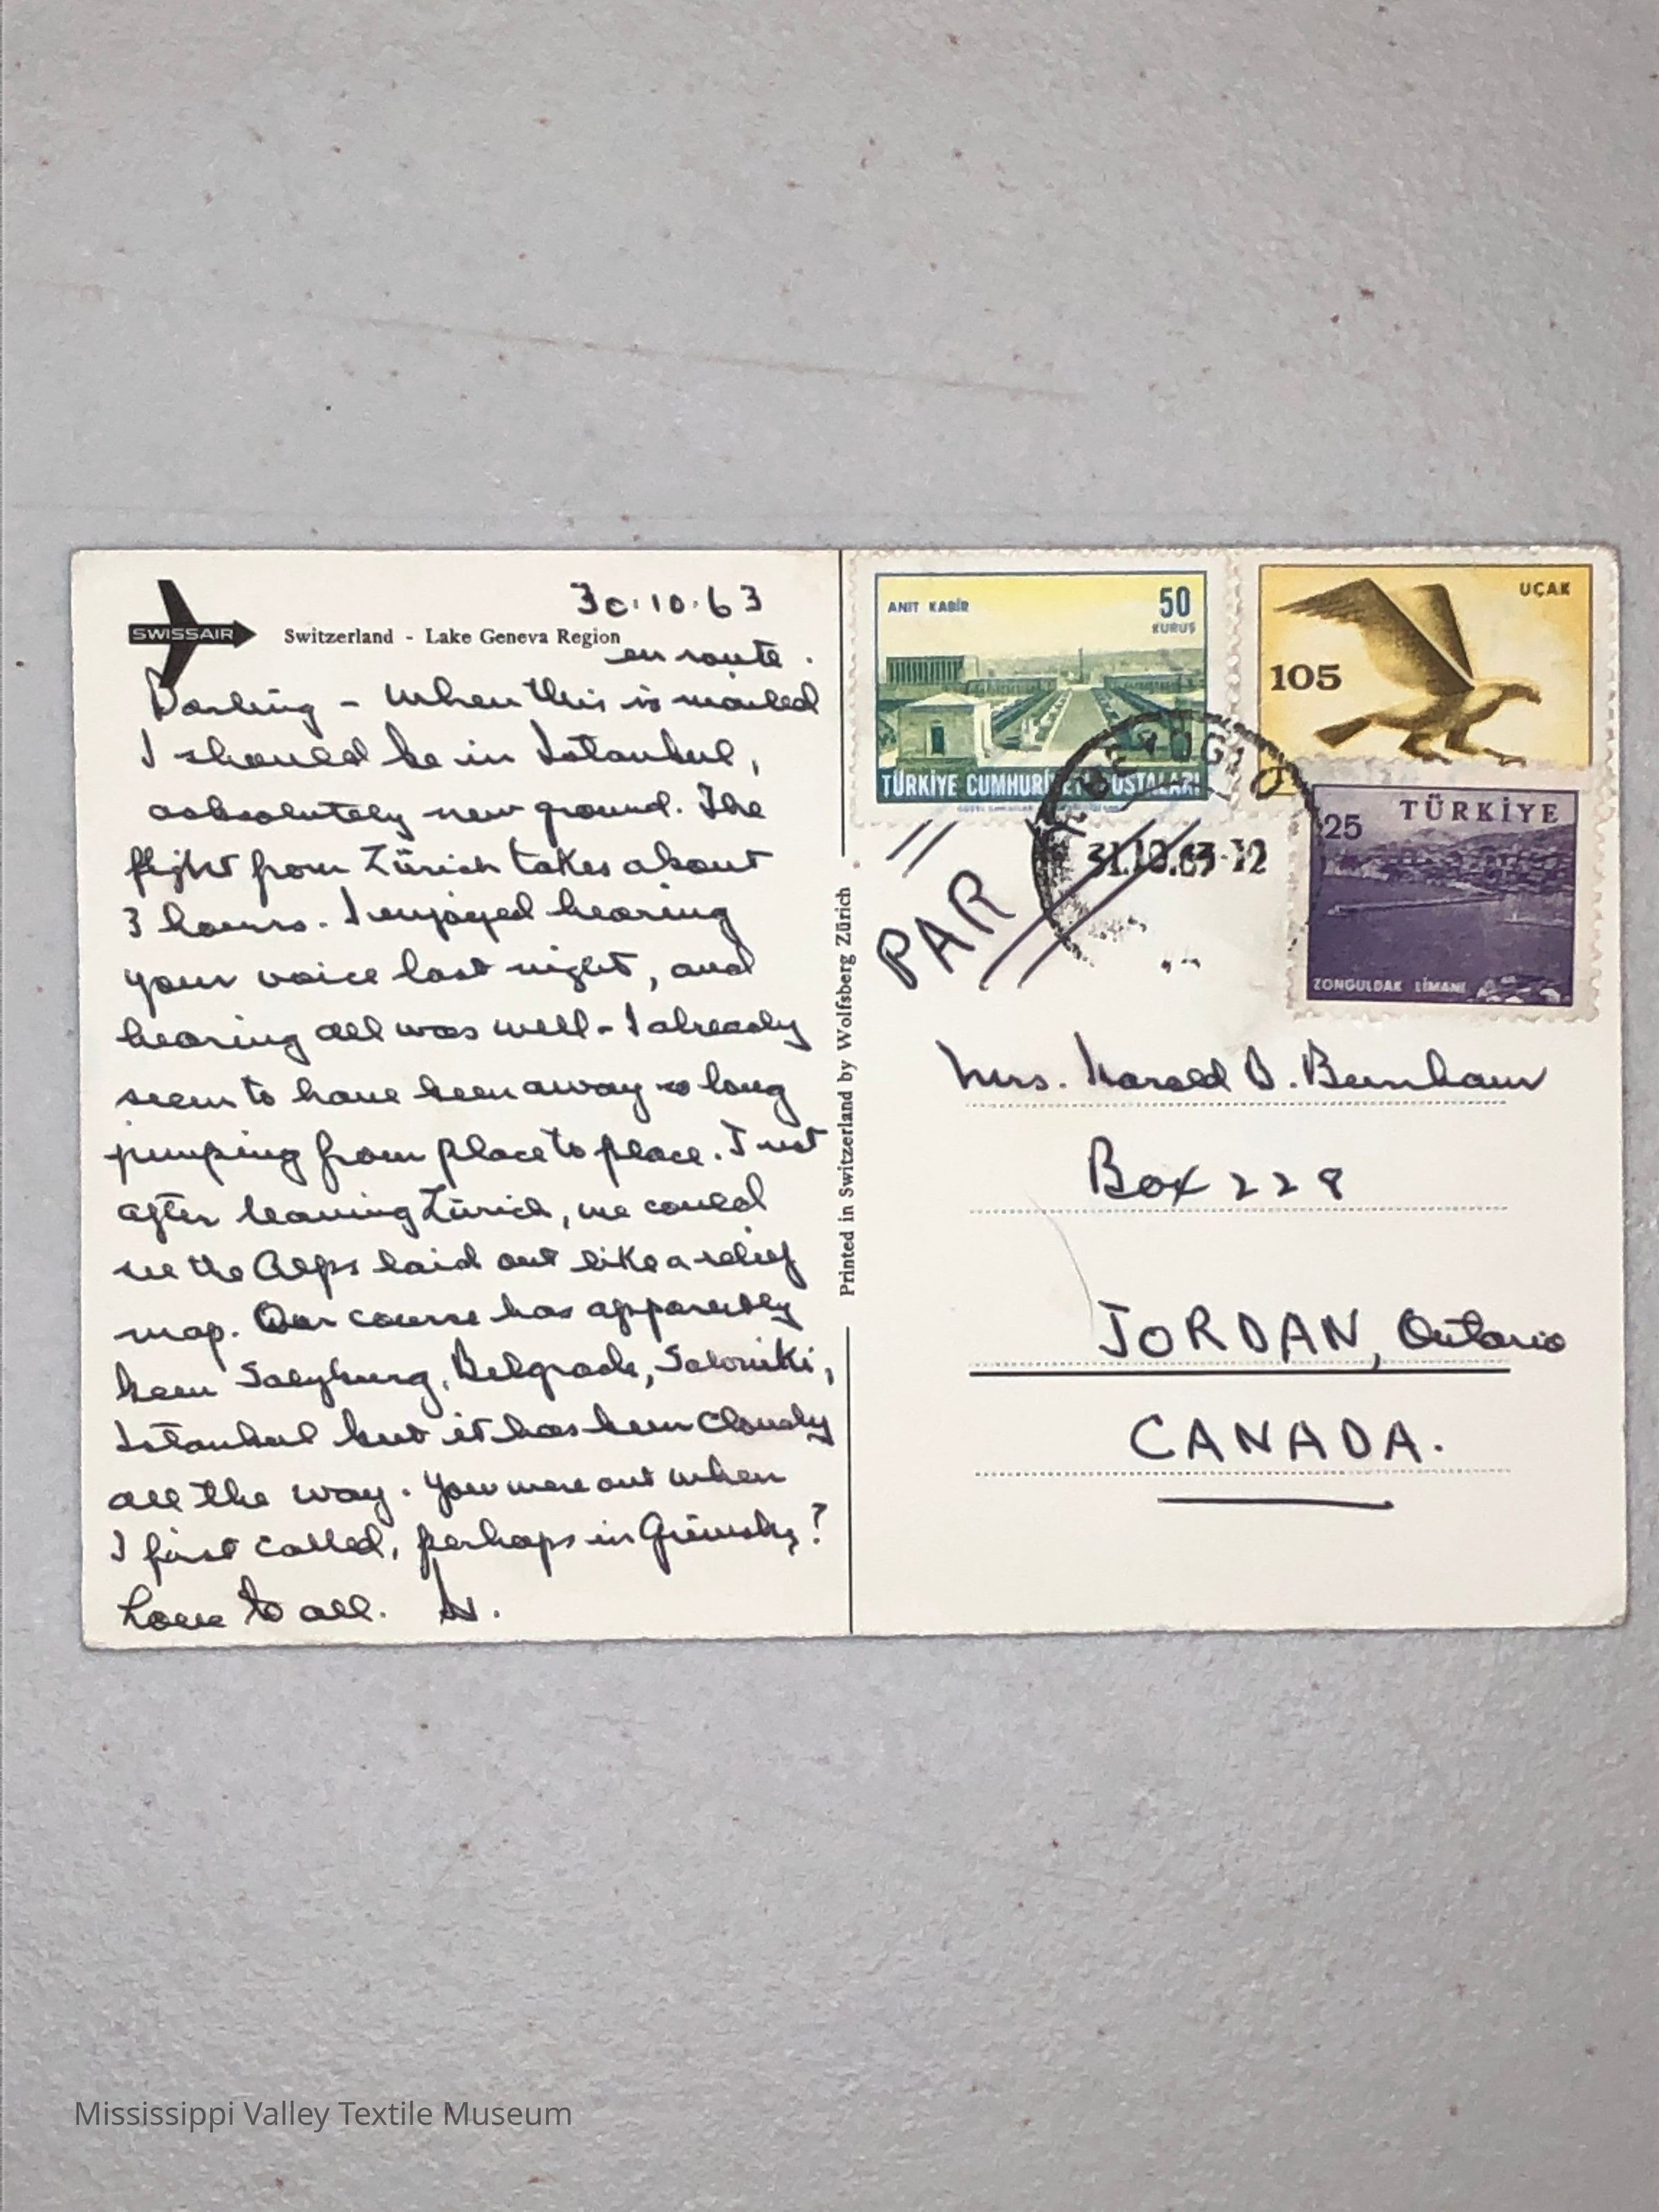 30.10.63
SWISSAIR
Switzerland - Lake Geneva Region
en route.
Darling - When this is mailed
I should be in Istanbul,
absolutely new ground. The
flight from Zürich takes about
3 hours. I enjoyed hearing
your voice last night, and
hearing all was well - I already
seem to have been away so long
jumping from place to place. Just
after leaving Zürich, we could
see the Alps laid out like a relief
map. Our course has apparently
been Salzburg, Belgrade, Saloniki,
Istanbul but it has been cloudy
all the way. You were out when
I first called, perhaps in Grimsby?
Love to all. H.
Printed in Switzerland by Wolfsberg Zürich
ANIT KABİR
50
KURUŞ
TÜRKİYE CUMHURİYETİ POSTALARI
UÇAK
105
TÜRKİYE
25
ZONGULDAK LİMANI
31.10.63-12
PAR
Mrs. Harold B. Burnham
Box 228
JORDAN, Ontario
CANADA.
Mississippi Valley Textile Museum